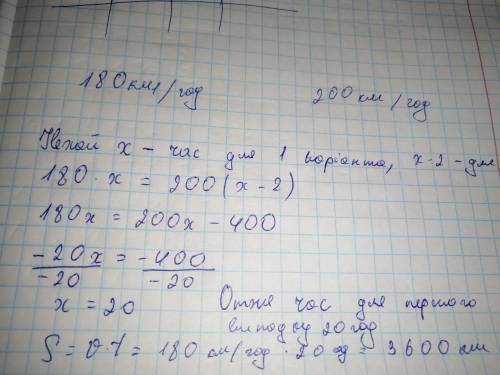 180 км/год 200 км/год
Нехай х - час для 1 варіанта, х-2-для
180 · х = 200(х - 2)
180х = 200х - 400
-20х = -400
-20 -20
х = 20 Отже час для першого
випадку 20 год
S = v·t = 180 км/год · 20 год = 3600 км